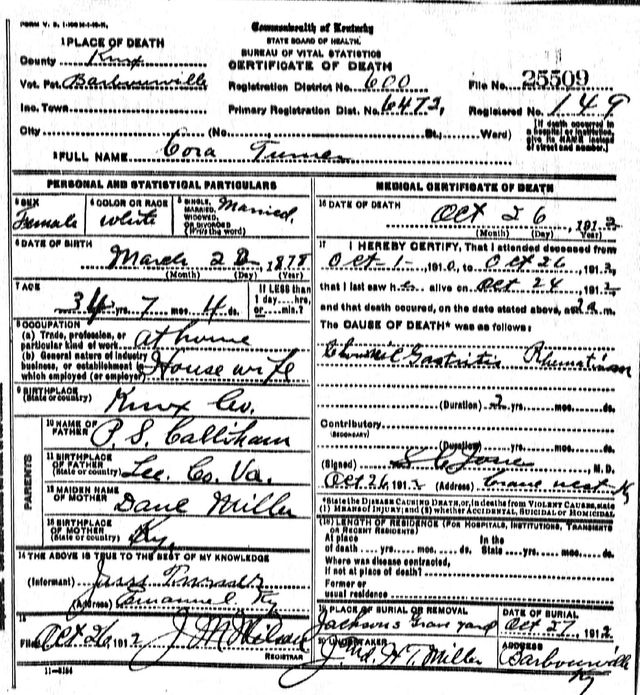 Commonwealth of Kentucky
STATE BOARD OF HEALTH.
BUREAU OF VITAL STATISTICS
CERTIFICATE OF DEATH
1 PLACE OF DEATH
County Knox
Vot. Pct. Barbourville
Registration District No. 600
File No. 25509
Inc. Town
Primary Registration Dist. No. 6472,
Registered No. 149
City (No., St., Ward)
[If death occurred in a hospital or institution, give its NAME instead of street and number.]
2 FULL NAME Cora Turner
PERSONAL AND STATISTICAL PARTICULARS
3 SEX Female
4 COLOR OR RACE white
5 SINGLE, MARRIED, WIDOWED, OR DIVORCED (Write the word) Married,
6 DATE OF BIRTH
March 22 1878
(Month) (Day) (Year)
7 AGE
34 yrs. 7 mos. 4 ds.
If LESS than 1 day....hrs. or....min.?
8 OCCUPATION
(a) Trade, profession, or particular kind of work At home
(b) General nature of industry business, or establishment in which employed (or employer) House wife
9 BIRTHPLACE
(State or country) Knox Co.
PARENTS
10 NAME OF FATHER P. S. Calliham
11 BIRTHPLACE OF FATHER (State or country) Lee. Co. Va.
12 MAIDEN NAME OF MOTHER Miller
13 BIRTHPLACE OF MOTHER (State or country) Ky.
14 THE ABOVE IS TRUE TO THE BEST OF MY KNOWLEDGE
(Informant)
(Address) Emanuel Ky
15
Filed Oct 26 1912 J M Wilson
REGISTRAR
MEDICAL CERTIFICATE OF DEATH
16 DATE OF DEATH
Oct 26, 1912
(Month) (Day) (Year)
17 I HEREBY CERTIFY, That I attended deceased from
Oct-1-, 191, to Oct 26, 1912,
that I last saw h alive on Oct 24, 1912,
and that death occured, on the date stated above, at m.
The CAUSE OF DEATH* was as follows:
Gastritis Rheumatism
(Duration) 2 yrs. mos. ds.
Contributory
(SECONDARY)
(Duration) yrs. mos. ds.
(Signed) M.D.
Oct 26, 1912 (Address) Crane nest Ky
*State the DISEASE CAUSING DEATH, or, in deaths from VIOLENT CAUSES, state (1) MEANS OF INJURY; and (2) whether ACCIDENTAL, SUICIDAL or HOMICIDAL.
18 LENGTH OF RESIDENCE (FOR HOSPITALS, INSTITUTIONS, TRANSIENTS OR RECENT RESIDENTS)
At place of death yrs. mos. ds. In the State yrs. mos. ds.
Where was disease contracted, if not at place of death?
Former or usual residence
19 PLACE OF BURIAL OR REMOVAL
Jacksons Grave yard
DATE OF BURIAL
Oct 27, 1912
20 UNDERTAKER
H. T. Miller
ADDRESS
Barbourville Ky